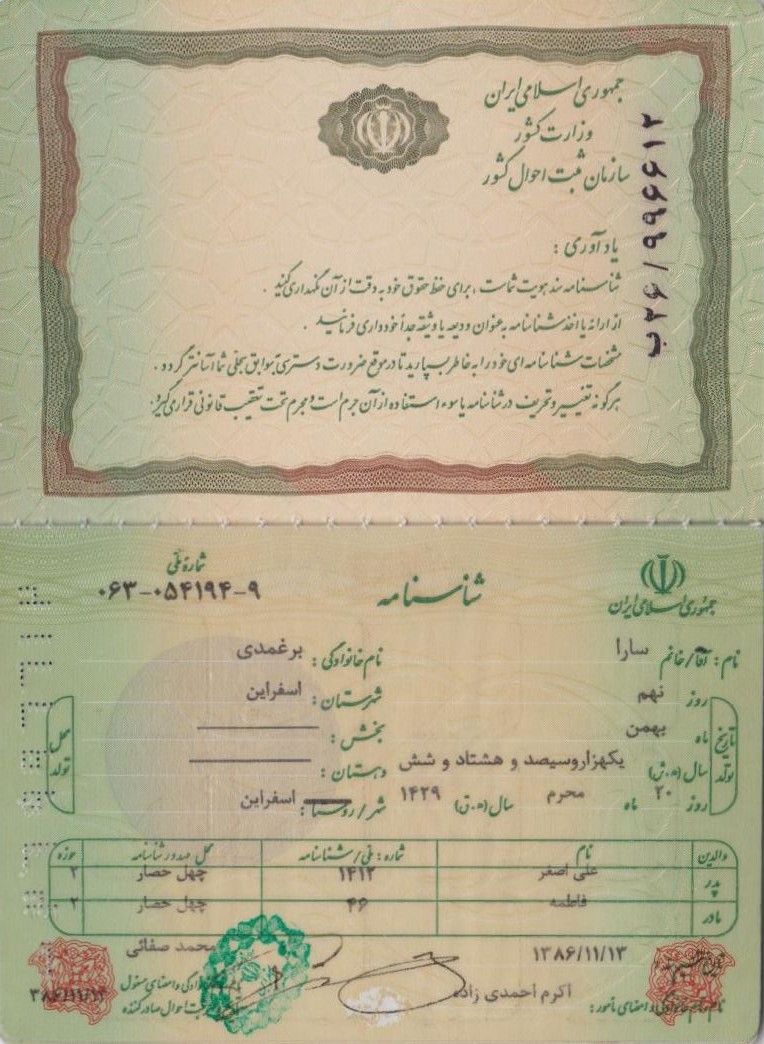 جمهوری اسلامی ایران
وزارت کشور
سازمان ثبت احوال کشور
ب۲۶/۹۹۶۶۱۲
یادآوری :
شناسنامه سند هویت شماست ، برای حفظ حقوق خود به دقت از آن نگهداری کنید .
از ارائه یا اخذ شناسنامه به عنوان ودیعه یا وثیقه جداً خودداری فرمائید .
مشخصات شناسنامه ای خود را به خاطر بسپارید تا در موقع ضرورت دسترسی بسوابق سجلی شما آسانتر گردد .
هرگونه تغییر و تحریف در شناسنامه یا سوء استفاده از آن جرم است و مجرم تحت تعقیب قانونی قرار می‌گیرد.
جمهوری اسلامی ایران
شناسنامه
شماره ملی
۰۶۳-۰۵۴۱۹۴-۹
نام : آقا/خانم سارا نام خانوادگی : برغمدی
تاریخ تولد
روز نهم شهرستان : اسفراین
ماه بهمن بخش :
سال (ه.ش) یکهزاروسیصد و هشتاد و شش دهستان :
روز ۲۰ ماه محرم سال (ه.ق) ۱۴۲۹ شهر/روستا : اسفراین
محل تولد
والدین نام شماره : ملی/شناسنامه محل صدور شناسنامه حوزه
پدر علی اصغر ۱۴۱۲ چهل حصار ۲
مادر فاطمه ۴۶ چهل حصار ۲
۱۳۸۶/۱۱/۱۳ محمد صفائی
اکرم احمدی زاده
نام خانوادگی و امضای مأمور: